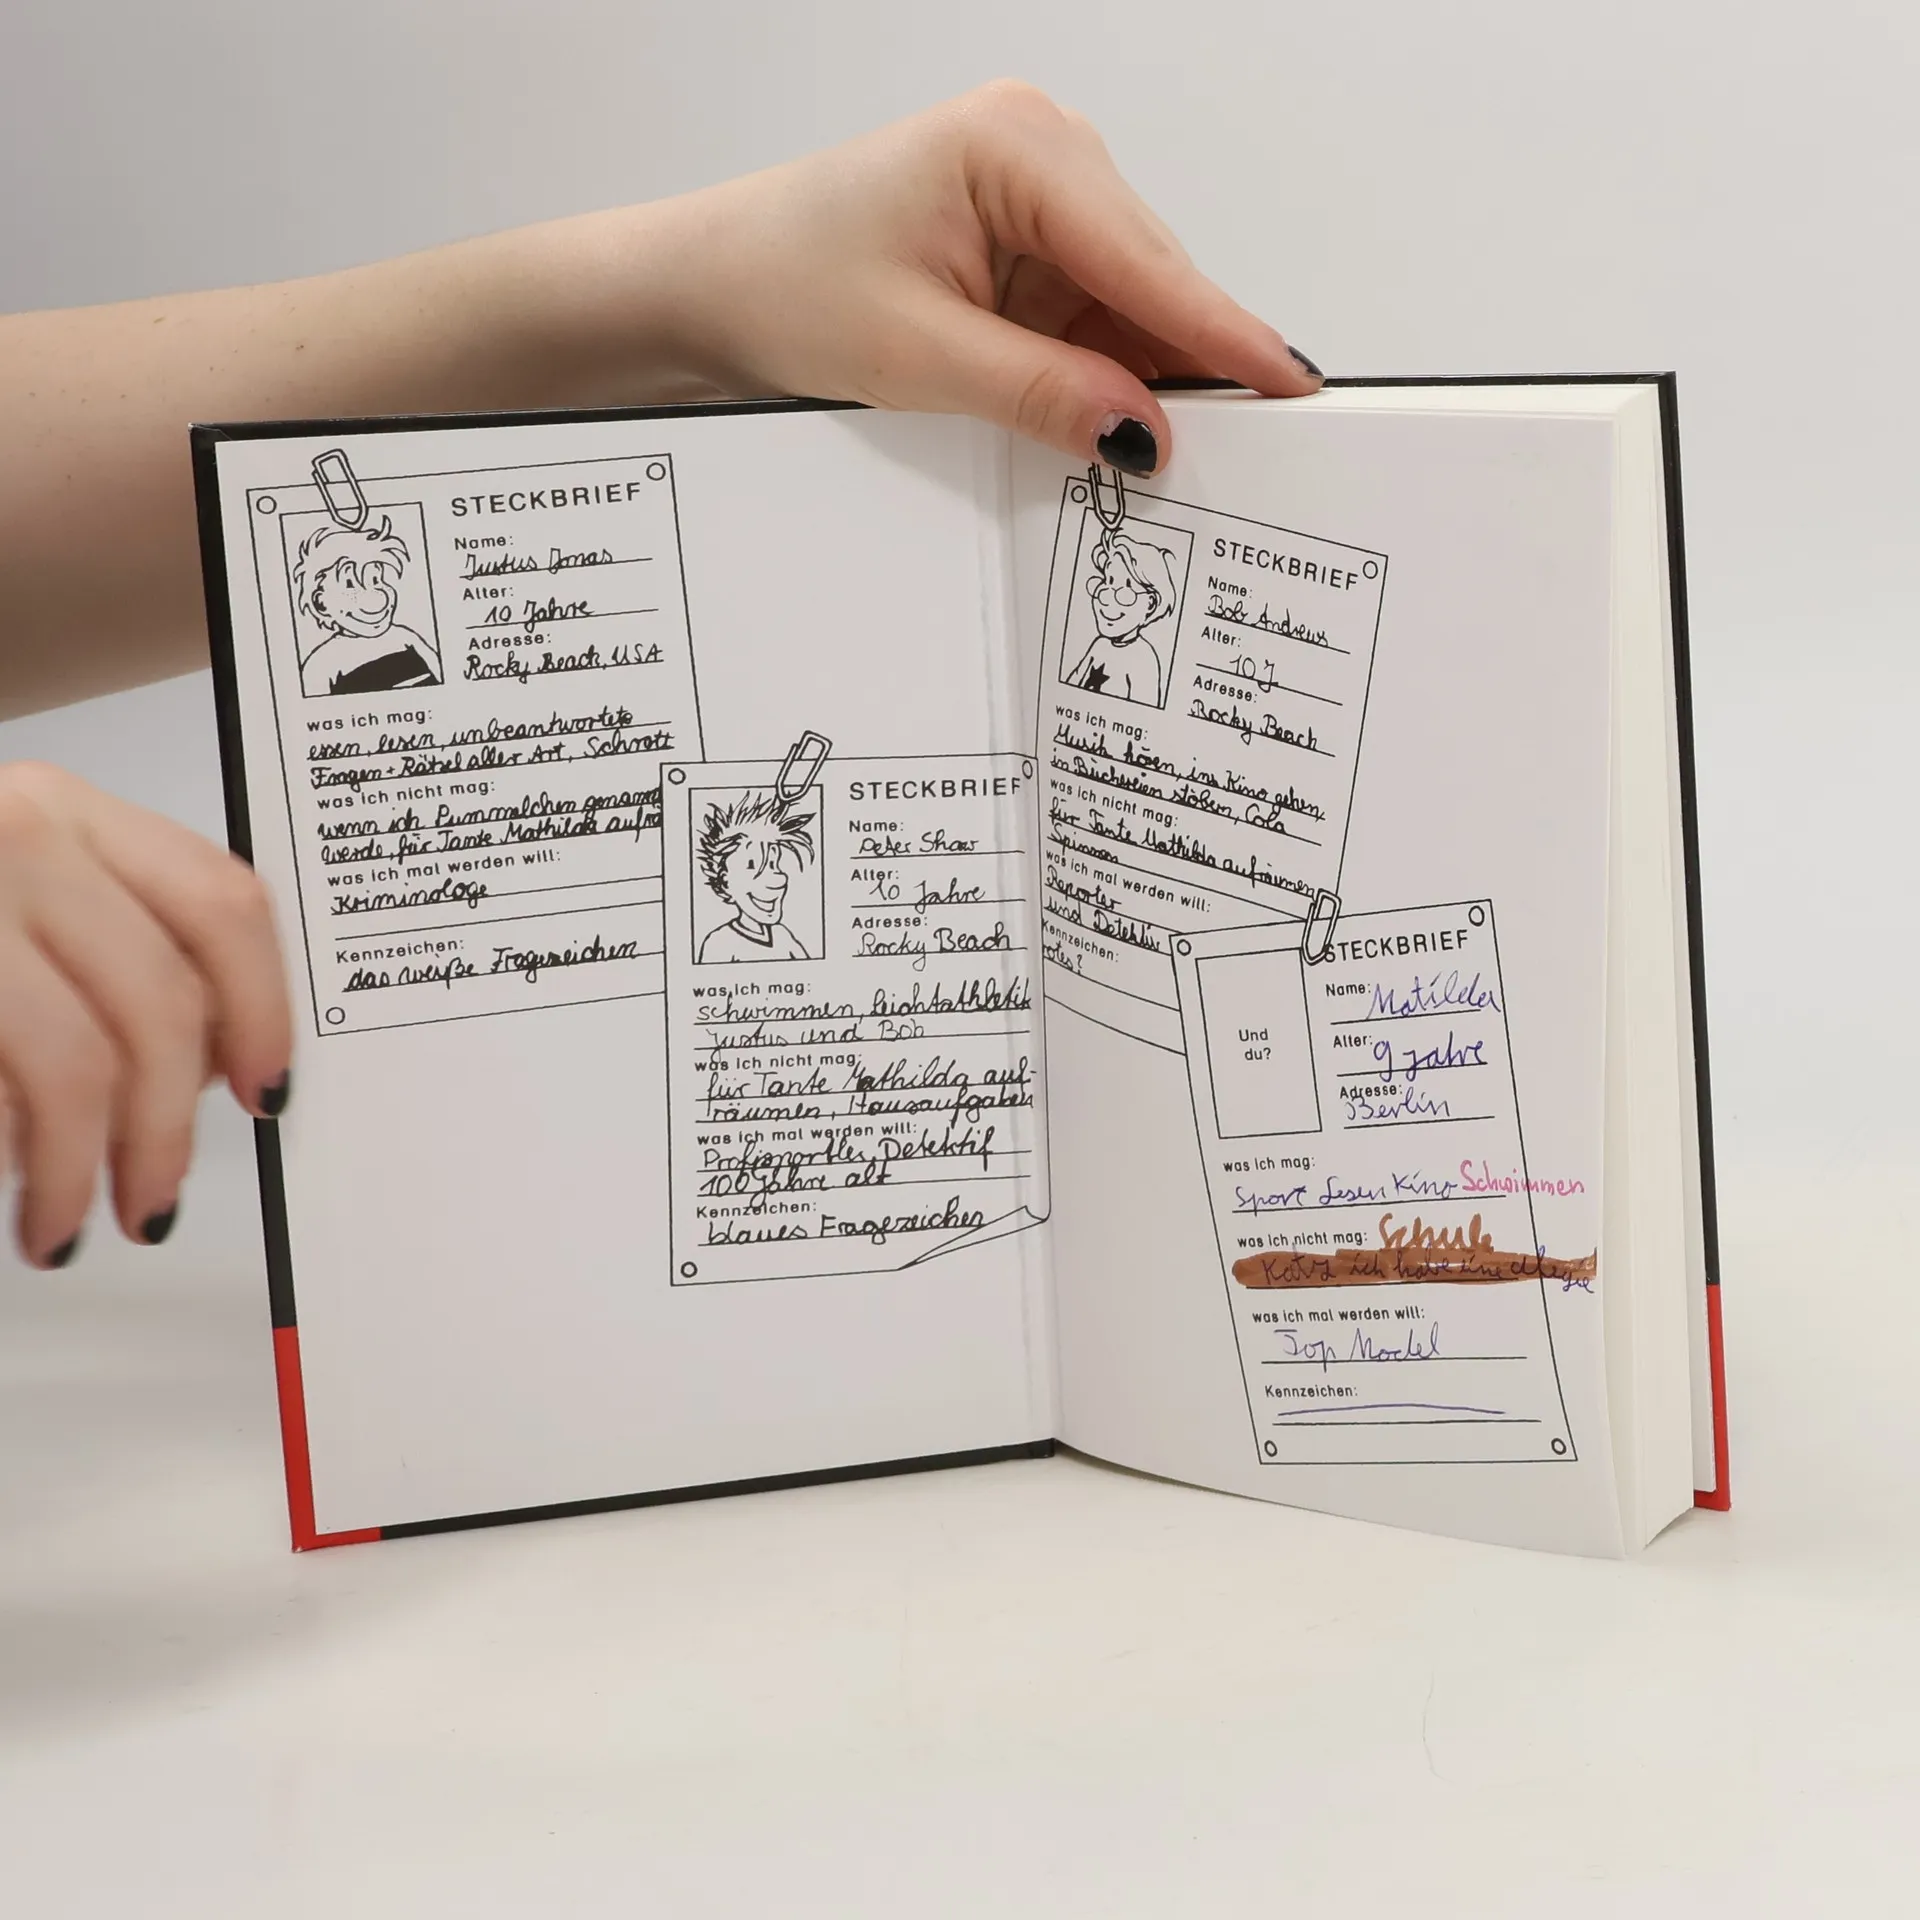 STECKBRIEF
Name:
Justus Jonas
Alter:
10 Jahre
Adresse:
Rocky Beach, USA
was ich mag:
essen, lesen, unbeantwortete
Fragen + Rätsel aller Art, Schrott
was ich nicht mag:
wenn ich Pummelchen genannt
werde, für Tante Mathilda aufrä
was ich mal werden will:
Kriminologe
Kennzeichen:
das weiße Fragezeichen
STECKBRIEF
Name:
Peter Shaw
Alter:
10 Jahre
Adresse:
Rocky Beach
was ich mag:
schwimmen, Leichtathletik
Justus und Bob
was ich nicht mag:
für Tante Mathilda auf-
räumen, Hausaufgaben
was ich mal werden will:
Profisportler, Detektif
100 Jahre alt
Kennzeichen:
blaues Fragezeichen
STECKBRIEF
Name:
Bob Andrews
Alter:
10 J
Adresse:
Rocky Beach
was ich mag:
Musik hören, ins Kino gehen,
in Büchereien stöbern, Cola
was ich nicht mag:
für Tante Mathilda aufräumen
Spinnen
was ich mal werden will:
Reporter
und Detektiv
Kennzeichen:
rotes?
STECKBRIEF
Und
du?
Name: Matilda
Alter: 9 Jahre
Adresse:
Berlin
was ich mag:
Sport Lesen Kino Schwimmen
was ich nicht mag: Schule
ich habe eine
was ich mal werden will:
Top Model
Kennzeichen: